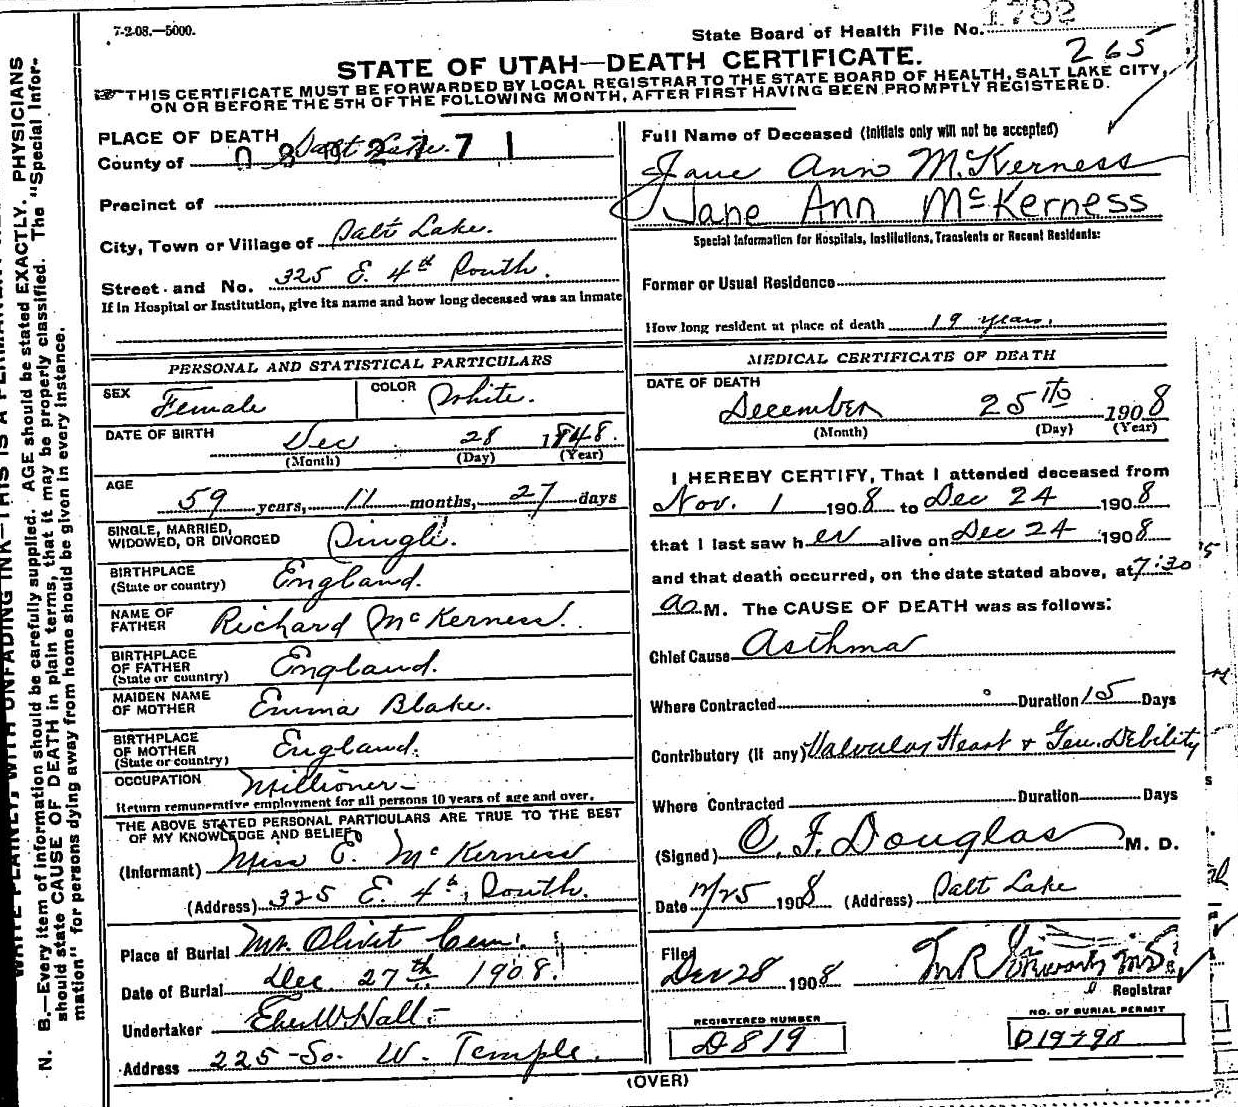 7-2-08.—5000.
State Board of Health File No. 1782
265
STATE OF UTAH—DEATH CERTIFICATE.
THIS CERTIFICATE MUST BE FORWARDED BY LOCAL REGISTRAR TO THE STATE BOARD OF HEALTH, SALT LAKE CITY,
ON OR BEFORE THE 5TH OF THE FOLLOWING MONTH, AFTER FIRST HAVING BEEN PROMPTLY REGISTERED.
PLACE OF DEATH
County of Salt Lake.
Precinct of
City, Town or Village of Salt Lake.
Street and No. 325 E. 4th South.
If in Hospital or Institution, give its name and how long deceased was an inmate
PERSONAL AND STATISTICAL PARTICULARS
SEX Female
COLOR White.
DATE OF BIRTH Dec 28 1848.
(Month) (Day) (Year)
AGE
59 years, 11 months, 27 days
SINGLE, MARRIED,
WIDOWED, OR DIVORCED Single.
BIRTHPLACE
(State or country) England.
NAME OF
FATHER Richard McKerness.
BIRTHPLACE
OF FATHER
(State or country) England.
MAIDEN NAME
OF MOTHER Emma Blake.
BIRTHPLACE
OF MOTHER
(State or country) England.
OCCUPATION Millioner
Return remunerative employment for all persons 10 years of age and over.
THE ABOVE STATED PERSONAL PARTICULARS ARE TRUE TO THE BEST
OF MY KNOWLEDGE AND BELIEF
(Informant) Miss E. McKerness
(Address) 325 E. 4th, South.
Place of Burial Mt. Olivit Cem.
Date of Burial Dec 27th 1908.
Undertaker Eber W Hall
Address 225 So. W. Temple.
Full Name of Deceased (Initials only will not be accepted)
Jane Ann McKerness
Jane Ann McKerness
Special Information for Hospitals, Institutions, Transients or Recent Residents:
Former or Usual Residence
How long resident at place of death 19 years.
MEDICAL CERTIFICATE OF DEATH
DATE OF DEATH
December 25th 1908
(Month) (Day) (Year)
I HEREBY CERTIFY, That I attended deceased from
Nov. 1 1908 to Dec 24 1908
that I last saw her alive on Dec 24 1908
and that death occurred, on the date stated above, at 7:30
a M. The CAUSE OF DEATH was as follows:
Chief Cause Asthma
Where Contracted Duration 15 Days
Contributory (if any) Valvular Heart & Gen. Debility
Where Contracted Duration Days
(Signed) C. F. Douglas M. D.
Date 12/25 1908 (Address) Salt Lake
Filed
Dec 28 1908
Registrar
REGISTERED NUMBER
D819
NO. OF BURIAL PERMIT
(OVER)
N. B.—Every item of information should be carefully supplied. AGE should be stated EXACTLY. PHYSICIANS
should state CAUSE OF DEATH in plain terms, that it may be properly classified. The "Special Infor-
mation" for persons dying away from home should be given in every instance.